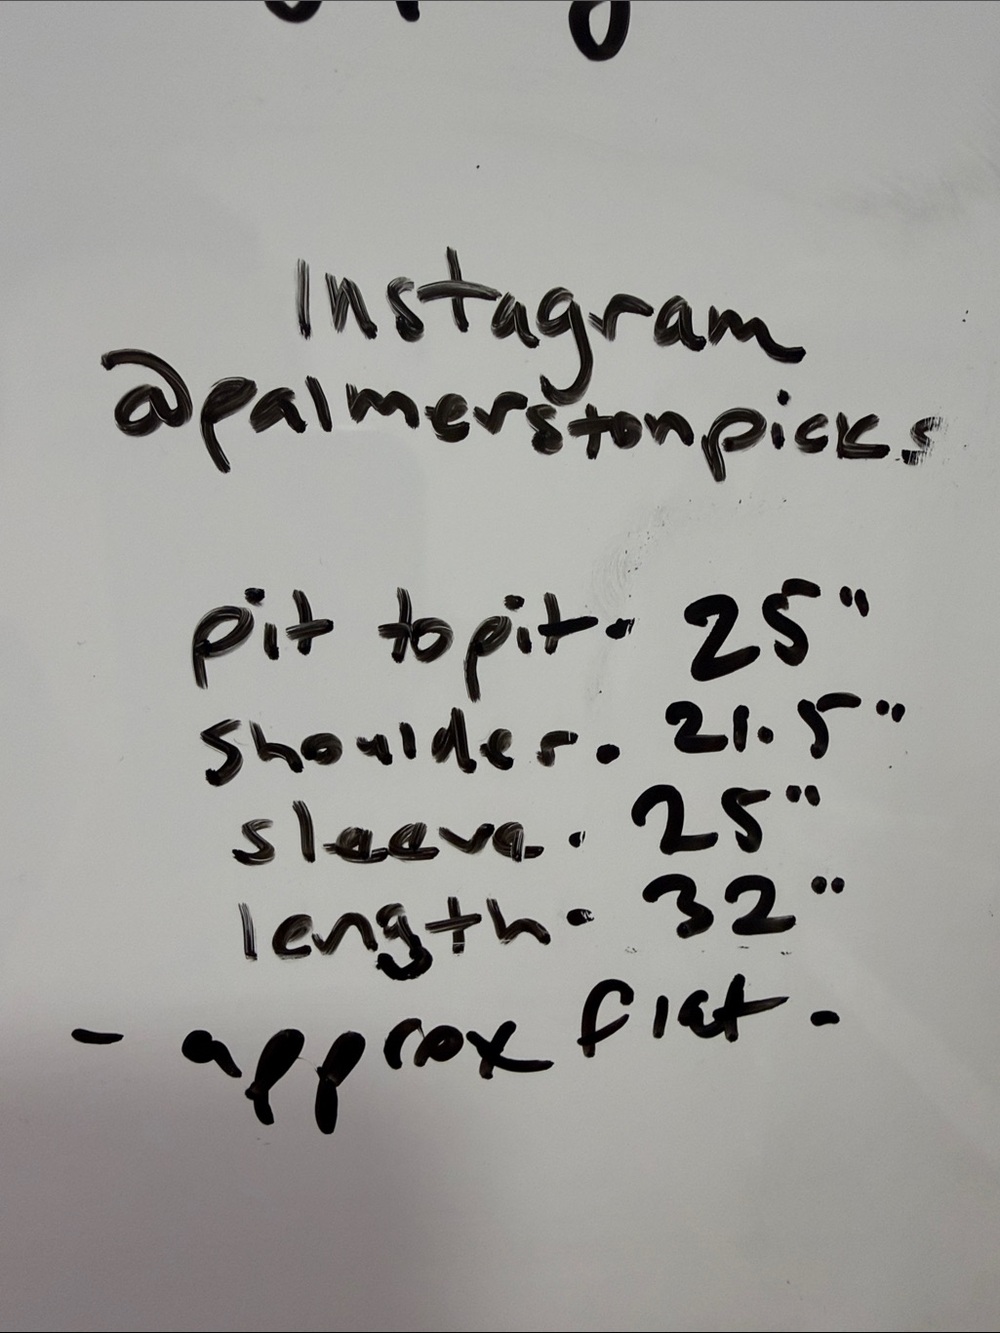 Instagram
@palmerstonpicks
pit to pit - 25"
shoulder. 21.5"
sleeve. 25"
length. 32"
- approx flat -